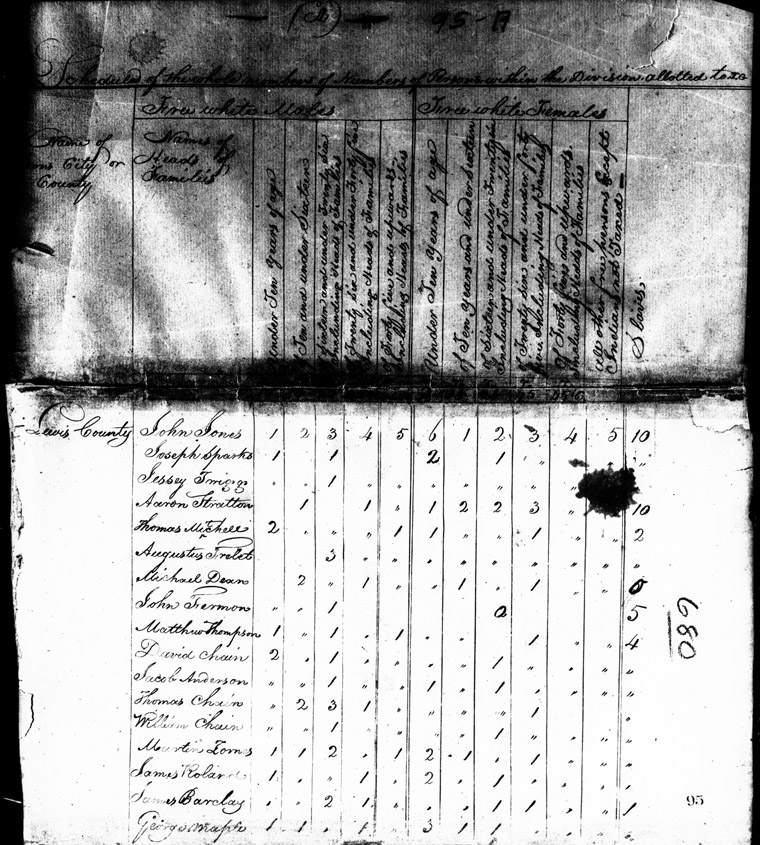 (26) 95-A
Schedule of the whole number of Persons within the Division allotted to
Free white Males Free white Females
Name of City or County
Names of Heads of Families
Under Ten years of age
of Ten and under Sixteen
of Sixteen and under Twenty six including Heads of Families
of Twenty six and under Forty five including Heads of Families
of Forty five and upwards including Heads of Families
Under Ten Years of age
of Ten years and under Sixteen
of Sixteen and under Twenty six including Heads of Families
of Twenty six and under Forty five including Heads of Families
of Forty five and upwards including Heads of Families
All other free persons except Indians not Taxed
Slaves
Lewis County John Jones 1 2 3 4 5 6 1 2 3 4 5 10
Joseph Sparks 1 " 1 2 1 " "
Jessey Triggs " " 1 " " " " " " " "
Aaron Stratton 1 1 " 1 2 2 3 " 10
Thomas Michell 2 " " " 1 1 " " 1 " " 2
Augustus 3 " " " " " " " " "
Michael Dean 2 " 1 " " 1 " 1 " " 0
John Fermon " " 1 5
Matthew Thompson 1 " 1 " 1 " " " 1 " " 4
David Chain 2 " 1 " " " " 1 " " " "
Jacob Anderson " " 1 " " 1 " 1 " " " "
Thomas Chain " 2 3 1 " " " " 1 " " "
William Chain " " 1 " " " " 1 " " " "
Martin 1 1 2 " 1 2 1 " 1 " " "
James Roland 1 " " 1 " 2 " 1 " " " "
James Barclay " " 2 1 " " " 1 1 " " 1
George Maple 1 1 " 1 " 3 1 1 " " " "
680
95